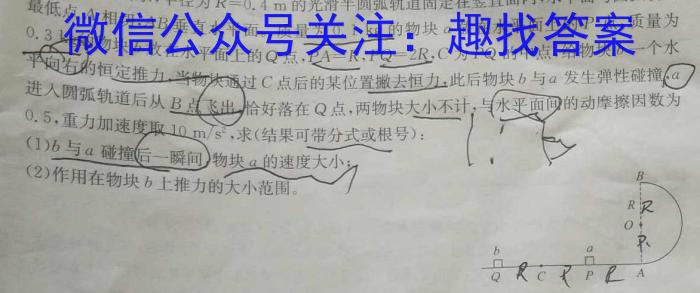 半径为R=0.4 m的光滑半圆弧轨道固定在竖直面内
最低点A相
微信公众号关注：趣找答案
质量为
0.3
放在水平面上的Q点，PA=R，PQ=2R，C为
一个水
平向右的恒定推力，当物块通过C点后的某位置撤去恒力，此后物块b与a发生弹性碰撞，a
进入圆弧轨道后从B点飞出，恰好落在Q点，两物块大小不计，与水平面间的动摩擦因数为
0.5，重力加速度取10 m/s²，求(结果可带分式或根号)：
(1)b与a碰撞后一瞬间，物块a的速度大小；
(2)作用在物块b上推力的大小范围。
B
R R
O
R
b a
Q R C R P R A